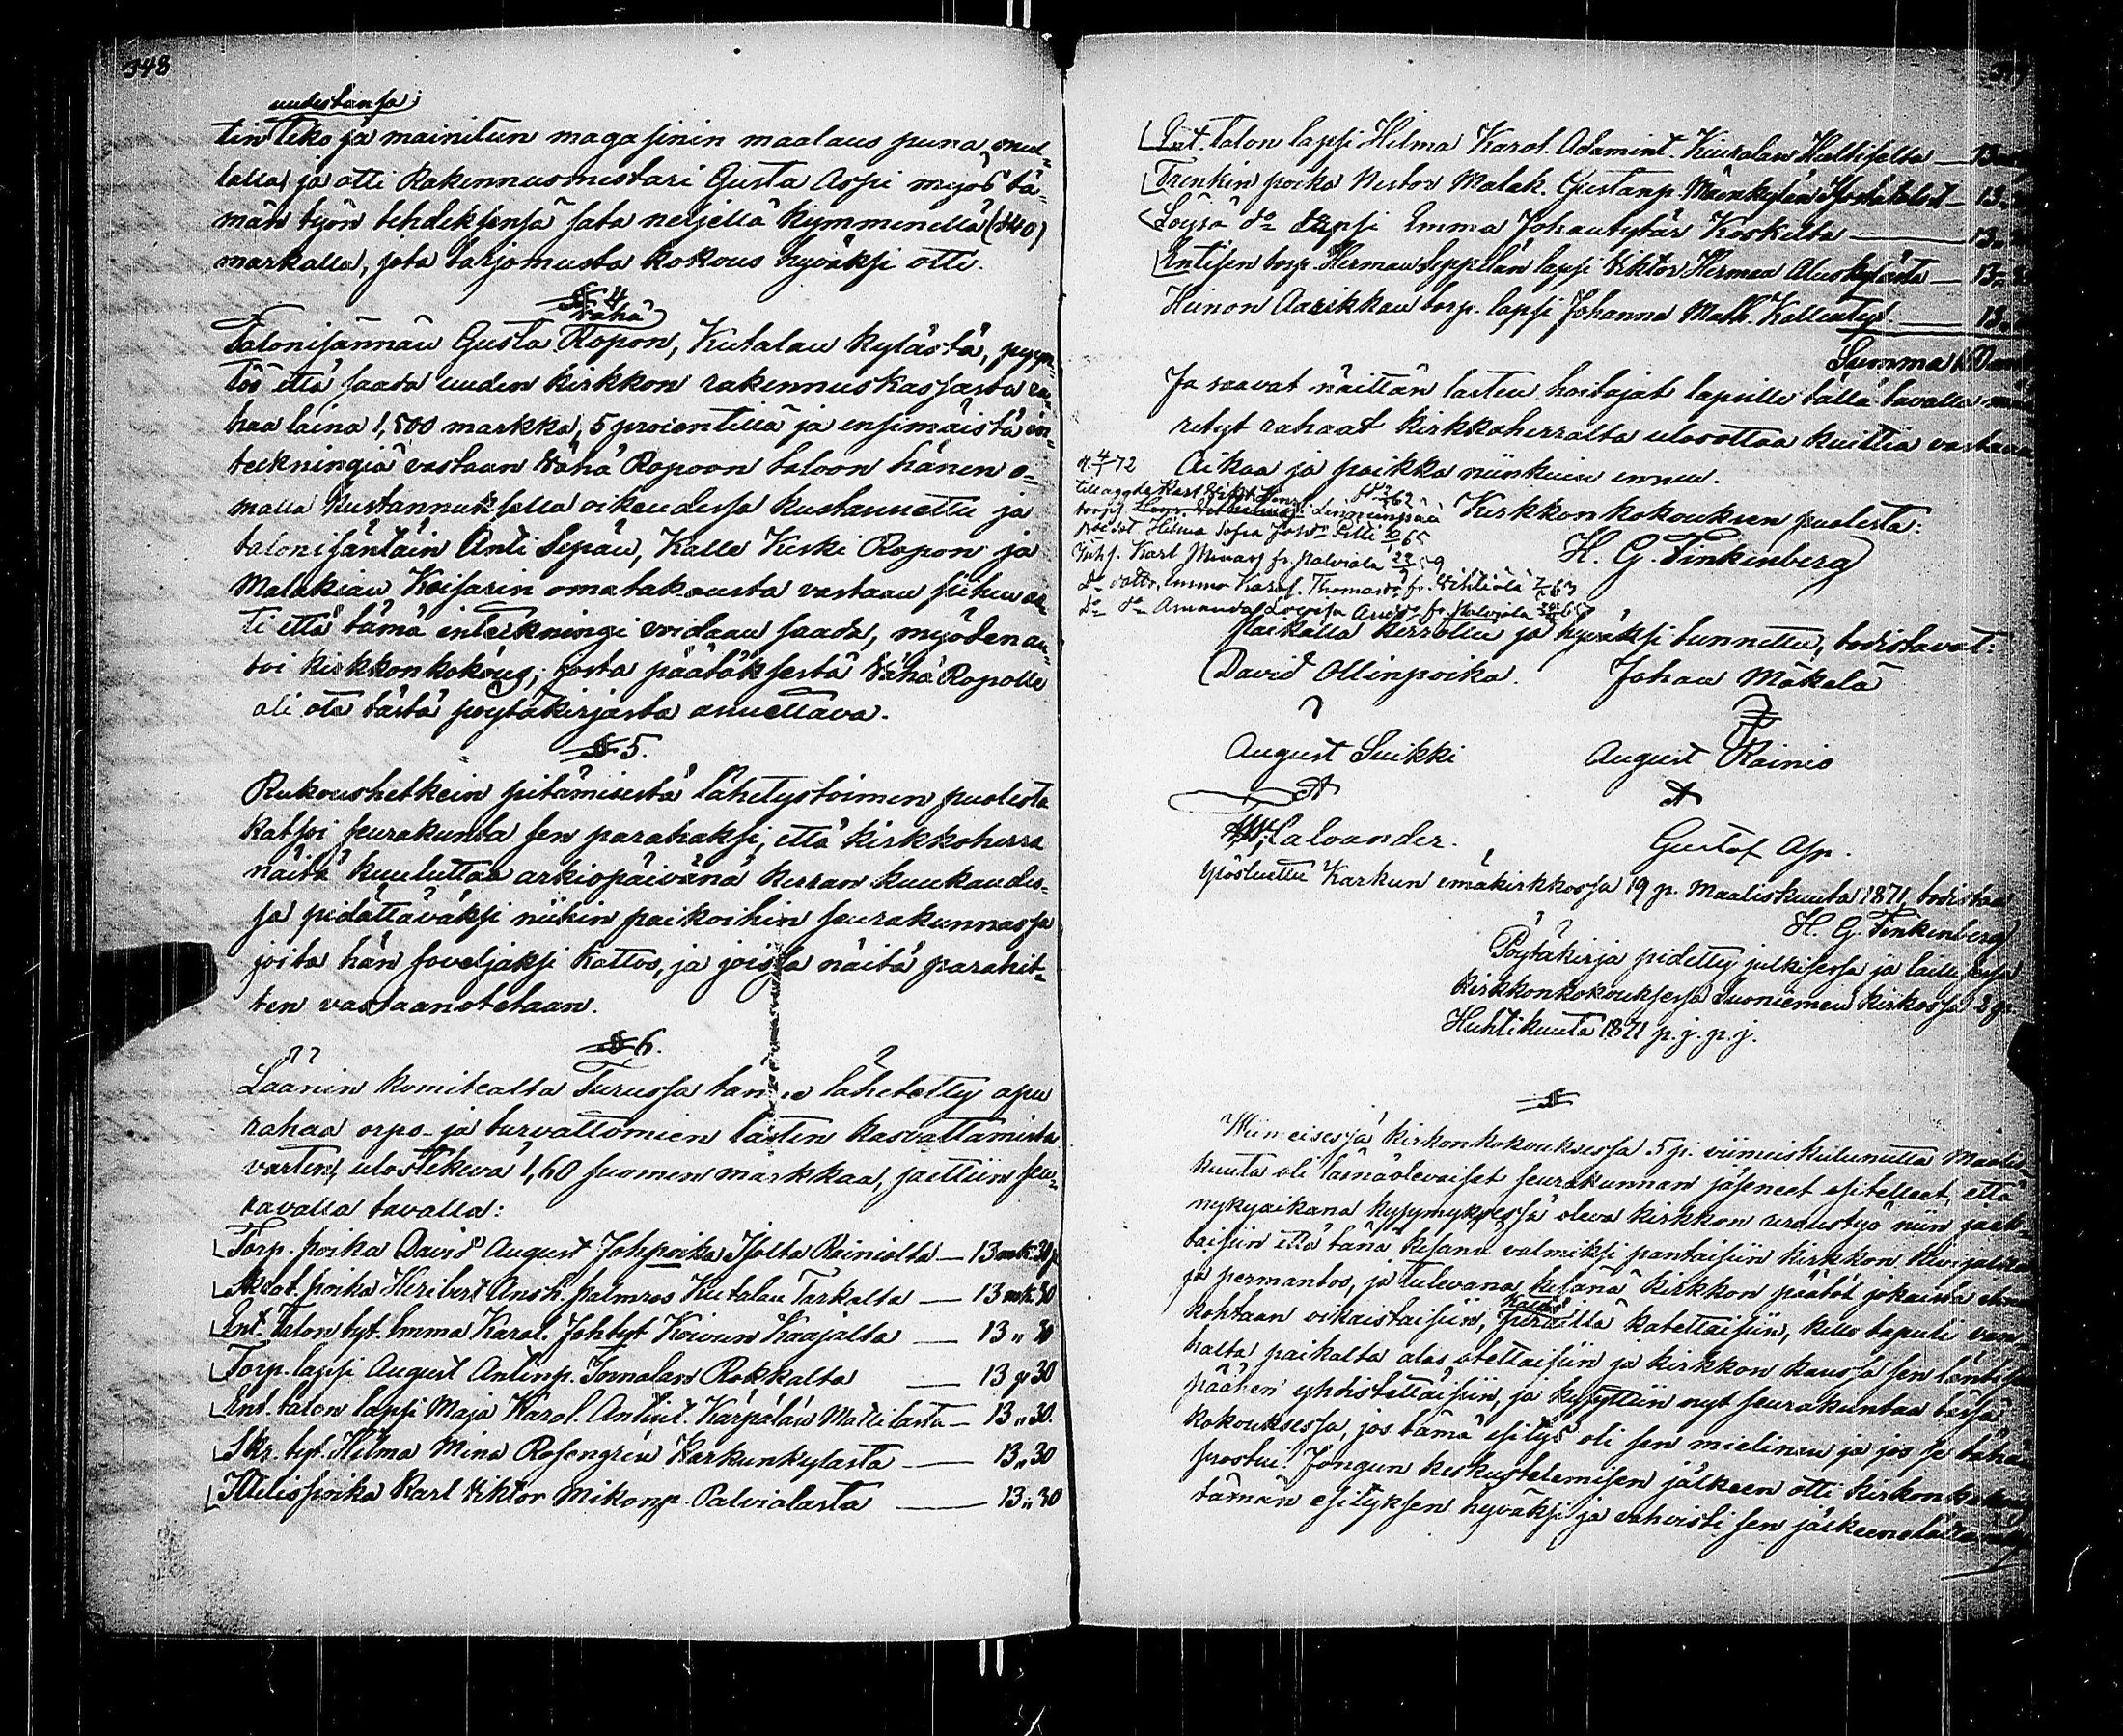 348
uudestansa
tin teko ja mainitun magasinin maalaus puna mul-
lalla ja otti Rakennusmestari Gusta Aspi myös tä-
män työn tehdäksensä sata neljällä kymmenellä (140)
markalla, jota tarjomusta kokous hyväksi otti.
§ 4
Vähä
Talonisännän Gusta Ropon, Kutalan kylästä, pyyn-
tös että saada uuden kirkkon rakennuskassasta ra-
haa laina 1,500 markka, 5 procentillä ja ensimäistä in-
teckningiä vastaan Vähä Ropoon taloon hänen o-
malla kustannuksella oikeudessa kustannettu ja
talonisäntäin Anti Sepän, Kalle Keski Ropon ja
Malakian Keisarin omatakausta vastaan siihen as-
ti että tämä inteckningi voidaan saada, myöden an-
toi kirkkonkokous; josta päätöksestä Vähä Ropolle
oli ote tästä pöytäkirjasta annettava.
§ 5.
Rukoushetkein pitämisestä lähetystoimen puolesta
katsoi seurakunta sen parahaksi, että kirkkoherra
näitä kuuluttaa arkiopäivänä kerran kuukaudes-
sa pidättäväksi niihin paikoihin seurakunnassa
joita hän soveljaksi kattoo, ja joissa näitä parahit-
ten vastaanotetaan.
§ 6.
Läänin komitealta Turussa tänne lähetetty apu
rahaa orpo- ja turvattomien lasten kasvattamista
varten, ulostekevä 1,60 suomen markkaa, jaettiin seu-
ravalla tavalla:
Torp. poika David August Johpoika Isolta Rainiolta — 13 mk: 30 p
Skrat. poika Heribert Ansh. Palmros Kutalan Tarkalta — 13 mk: 30
Ent. Talon tyt. Emma Karol. Johtyt Koivun Kaajalta — 13 „ 30
Torp. lapsi August Antinp. Tomalan Rokkalta — 13 „ 30
Ent. talon lapsi Maja Karol. Antint. Kärpälän Mattilasta — 13 „ 30.
Skr. tyt. Hilma Mina Rosengrén Karkunkylästa — 13 „ 30
Itselispoika Karl Viktor Mikonp. Palvialasta — 13 „ 30
Ent. talon lapsi Hilma Karol. Adamint. Kiuralan — 13
Trenkin poika Nestor Malak. Gustanp. — 13
Löysä do lapsi Emma Johantytär Koskelta — 13
Entisen torp. Herman Seppälän lapsi Viktor Herman Aluskylästä — 13
Heinon Aarikkan torp. lapsi Johanna Math. Kallentyt — 13
Summa
Ja saavat näittän lasten hoitajat lapsille tällä tavalla
retyt rahaat kirkkoherralta ulosottaa kuittia vastaan
Aikaa ja paikka niinkuin ennen.
Kirkkonkokouksen puolesta:
H. G. Finkenberg
Hilma Sofia
Karl
Emma Karol. Thomasdr fr.
do do Amanda Lovisa
Paikalla kerrottu ja hyväksi tunnettu, todistavat:
David Ollinpoika. Johan Mäkelä
August Suikki August Rainio
Caloander. Gustaf Asp.
Ylösluettu Karkun emäkirkkossa 19 p. Maaliskuuta 1871, todistaa
H. G. Finkenberg
Pöytäkirja pidetty julkisessa ja laillisessa
kirkkonkokouksessa Suoniemen kirkossa 2 p.
Huhtikuuta 1871 p. j. p. j.
§
Wiimeisessä kirkonkokouksessa 5 p. viimeiskulunutta Maalis-
kuuta oli läsnäolevaiset seurakunnan jäseneet esitelleet, että
nykyaikana kysymyksessä oleva kirkkon uraustyö niin jaet-
taisiin että tänä kesänä valmiksi pantaisiin kirkkon kivijalka
ja permantoo, ja tulevana kesänä kirkkon päätöt jokaista
kohtaan oikaistaisiin, katto päreillä katettaisiin, kello tapuli van-
halta paikalta alas otettaisiin ja kirkkon kanssa sen läntisen
päähen yhdistettäisiin, ja kysyttiin nyt seurakuntaa tässä
kokouksessa, jos tämä esitys oli sen mielinen ja jos se tähän
suostui. Jongun keskustelemisen jälkeen otti kirkonkokous
tämän esityksen hyväksi ja vahvisti sen